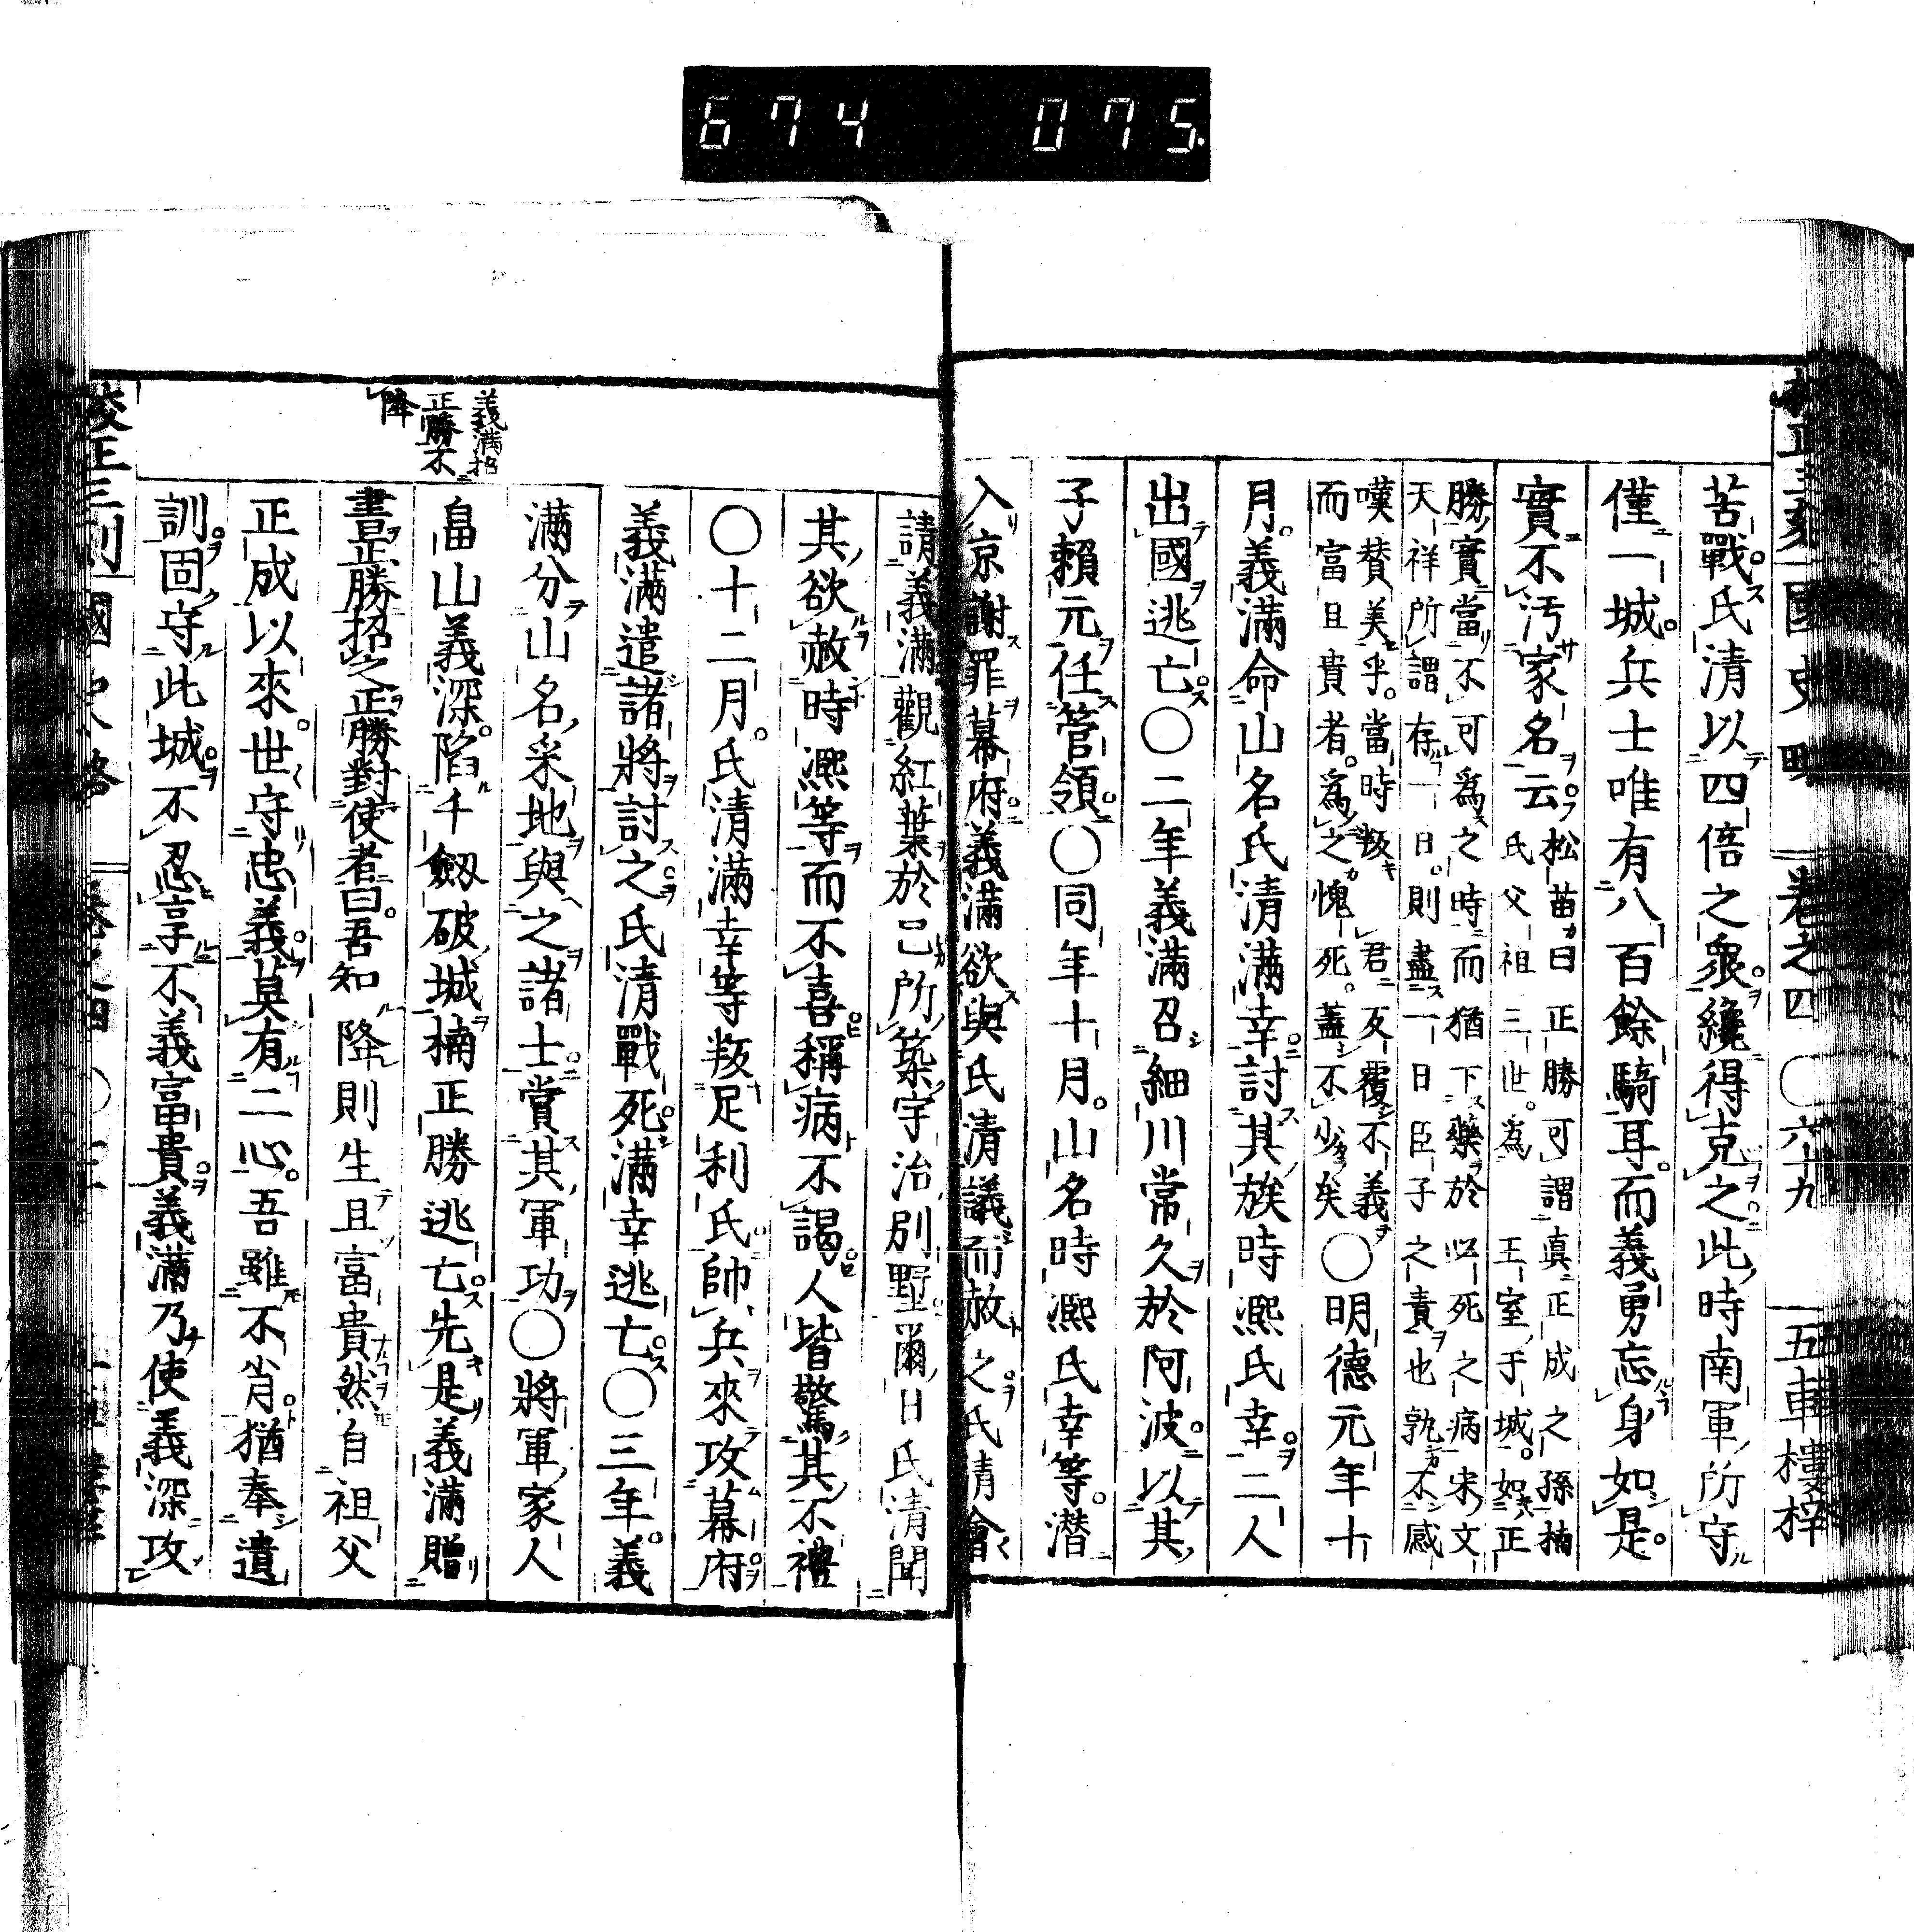 674 075
國史略 卷之四 〇六十九 五車樓梓
苦戰氏清以四倍之衆纔得克之此時南軍所守
僅一城兵士唯有八百餘騎耳而義勇忘身如是
實不汚家名云 松苗曰正勝可謂真正成之孫楠
氏父祖三世為王室于城如正
勝實當不可爲之時而猶下藥於必死之病宋文
天祥所謂存一日則盡一日臣子之責也孰不感
嘆賛美乎當時叛君反覆不義
而富且貴者爲之愧死蓋不少矣
〇明德元年十
月義滿命山名氏清滿幸討其族時凞氏幸二人
出國逃亡〇二年義滿召細川常久於阿波以其
子賴元任管領〇同年十月山名時凞氏幸等潜
入京謝罪幕府義滿欲與氏清議而赦之氏清會
義滿招
正勝不
降
請義滿觀紅葉於己所築宇治別墅爾日氏清聞
其欲赦時凞等而不喜稱病不謁人皆驚其不禮
〇十二月氏清滿幸等叛足利氏帥兵來攻幕府
義滿遣諸將討之氏清戰死滿幸逃亡〇三年義
滿分山名采地與之諸士賞其軍功〇將軍家人
畠山義深陷千劔破城楠正勝逃亡先是義滿贈
書正勝招之正勝對使者曰吾知降則生且富貴然自祖父
正成以來世守忠義莫有二心吾雖不肖猶奉遺
訓固守此城不忍享不義富貴義滿乃使義深攻